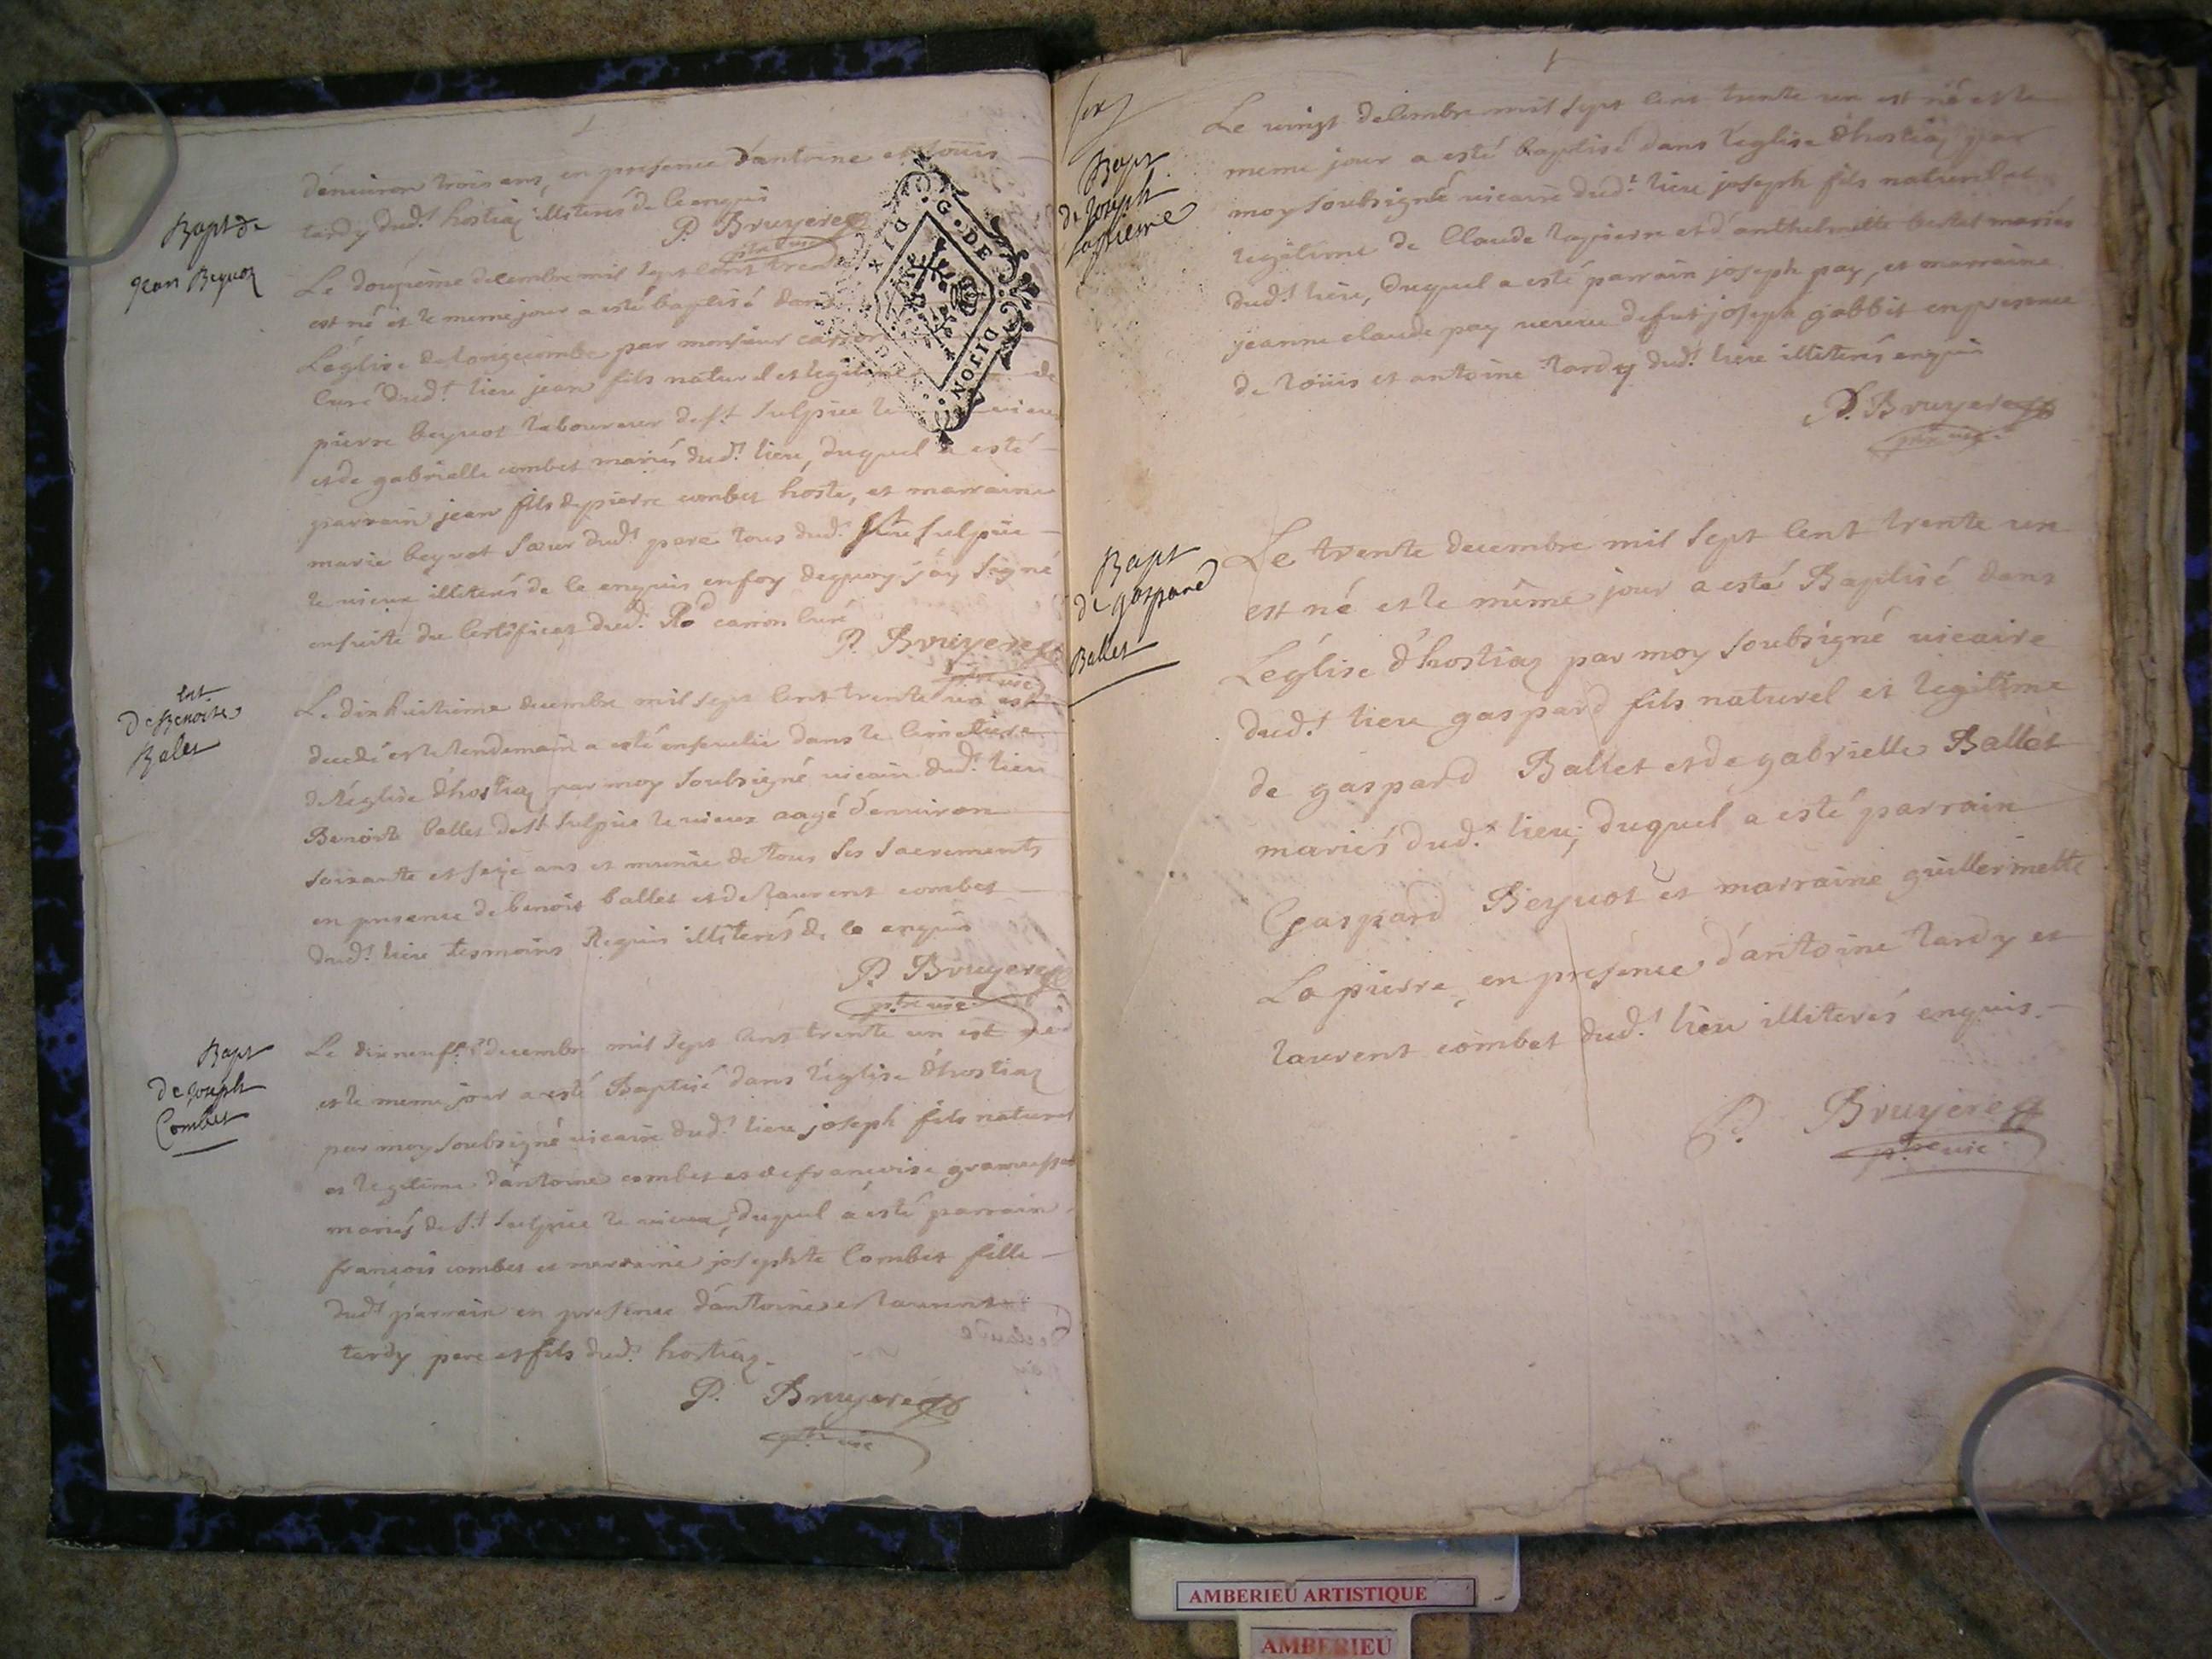 d'enuiron trois ans, en presence d'antoine et louis
tardy dud.t hostiaz illiterés de ce enquis
P. Bruyere
ptre vic
G. DE DIJON
Bapt de
jean Beyuoz
Le douzieme decembre mil sept cent trente
est né et le meme jour a esté baptisé dans
L'église de longecombe par monsieur carron
Curé dud.t lieu jean fils naturel et legitime de
pierre beyuot laboureur de s.t sulpice le vieux
et de gabrielle combet mariés dud.t lieu, duquel a esté
parrain jean fils de pierre combet hoste, et marraine
marie beyuot sœur dud.t pere tous dud. sulpice
le vieux illiterés de ce enquis en foy dequoy j'ay signé
ensuite du certificat dud. R.d carron curé
P. Bruyere
ptre vic
ent
de Benoite
Balet
Le dixhuitieme decembre mil sept cent trente un est
decedé et le lendemain a esté enseuelie dans le cimetiere
de l'église d'hostiaz par moy soubsigné vicaire dud.t lieu
Benoite ballet de s.t sulpice le vieux aagé d'enuiron
soixante et seize ans et munie de tous ses sacrements
en presence de benoit ballet et de laurent combet
dud.t lieu tesmoins Requis illiterés de ce enquis
P. Bruyere
ptre vic
Bapt
de joseph
Combet
Le dixneuf decembre mil sept cent trente un est né
et le meme jour a esté Baptisé dans l'église d'hostiaz
par moy soubsigné vicaire dud.t lieu joseph fils naturel
et legitime d'antoine combet et de francoise
mariés de s.t sulpice le vieux, duquel a esté parrain
francois combet et marraine josephte Combet fille
dud.t parrain en presence d'antoine et laurent
tardy pere et fils dud. hostiaz.
P. Bruyere
ptre vic
Bapt
de joseph
Lapierre
Le vingt decembre mil sept cent trente un est né et le
meme jour a esté baptisé dans l'eglise d'hostiaz par
moy soubsigné vicaire dud.t lieu joseph fils naturel et
legitime de Claude lapierre et d'anthelmette mariés
dud.t lieu, duquel a esté parrain joseph pay, et marraine
jeanne claude pay veuue de fut joseph gobbit en presence
de loüis et antoine tardy dud.t lieu illiterés enquis
P. Bruyere
ptre vic
Bapt
de gaspard
Ballet
Le trente decembre mil sept cent trente un
est né et le même jour a esté Baptisé dans
L'église d'hostiaz par moy soubsigné vicaire
dud.t lieu gaspard fils naturel et legitime
de gaspard Ballet et de gabrielle Ballet
mariés dud.t lieu; duquel a esté parrain
Gaspard Beyuot et marraine guillermette
La pierre, en presence d'antoine tardy et
laurent combet dud.t lieu illiterés enquis.
P. Bruyere
ptre vic
AMBERIEU ARTISTIQUE
AMBERIEU